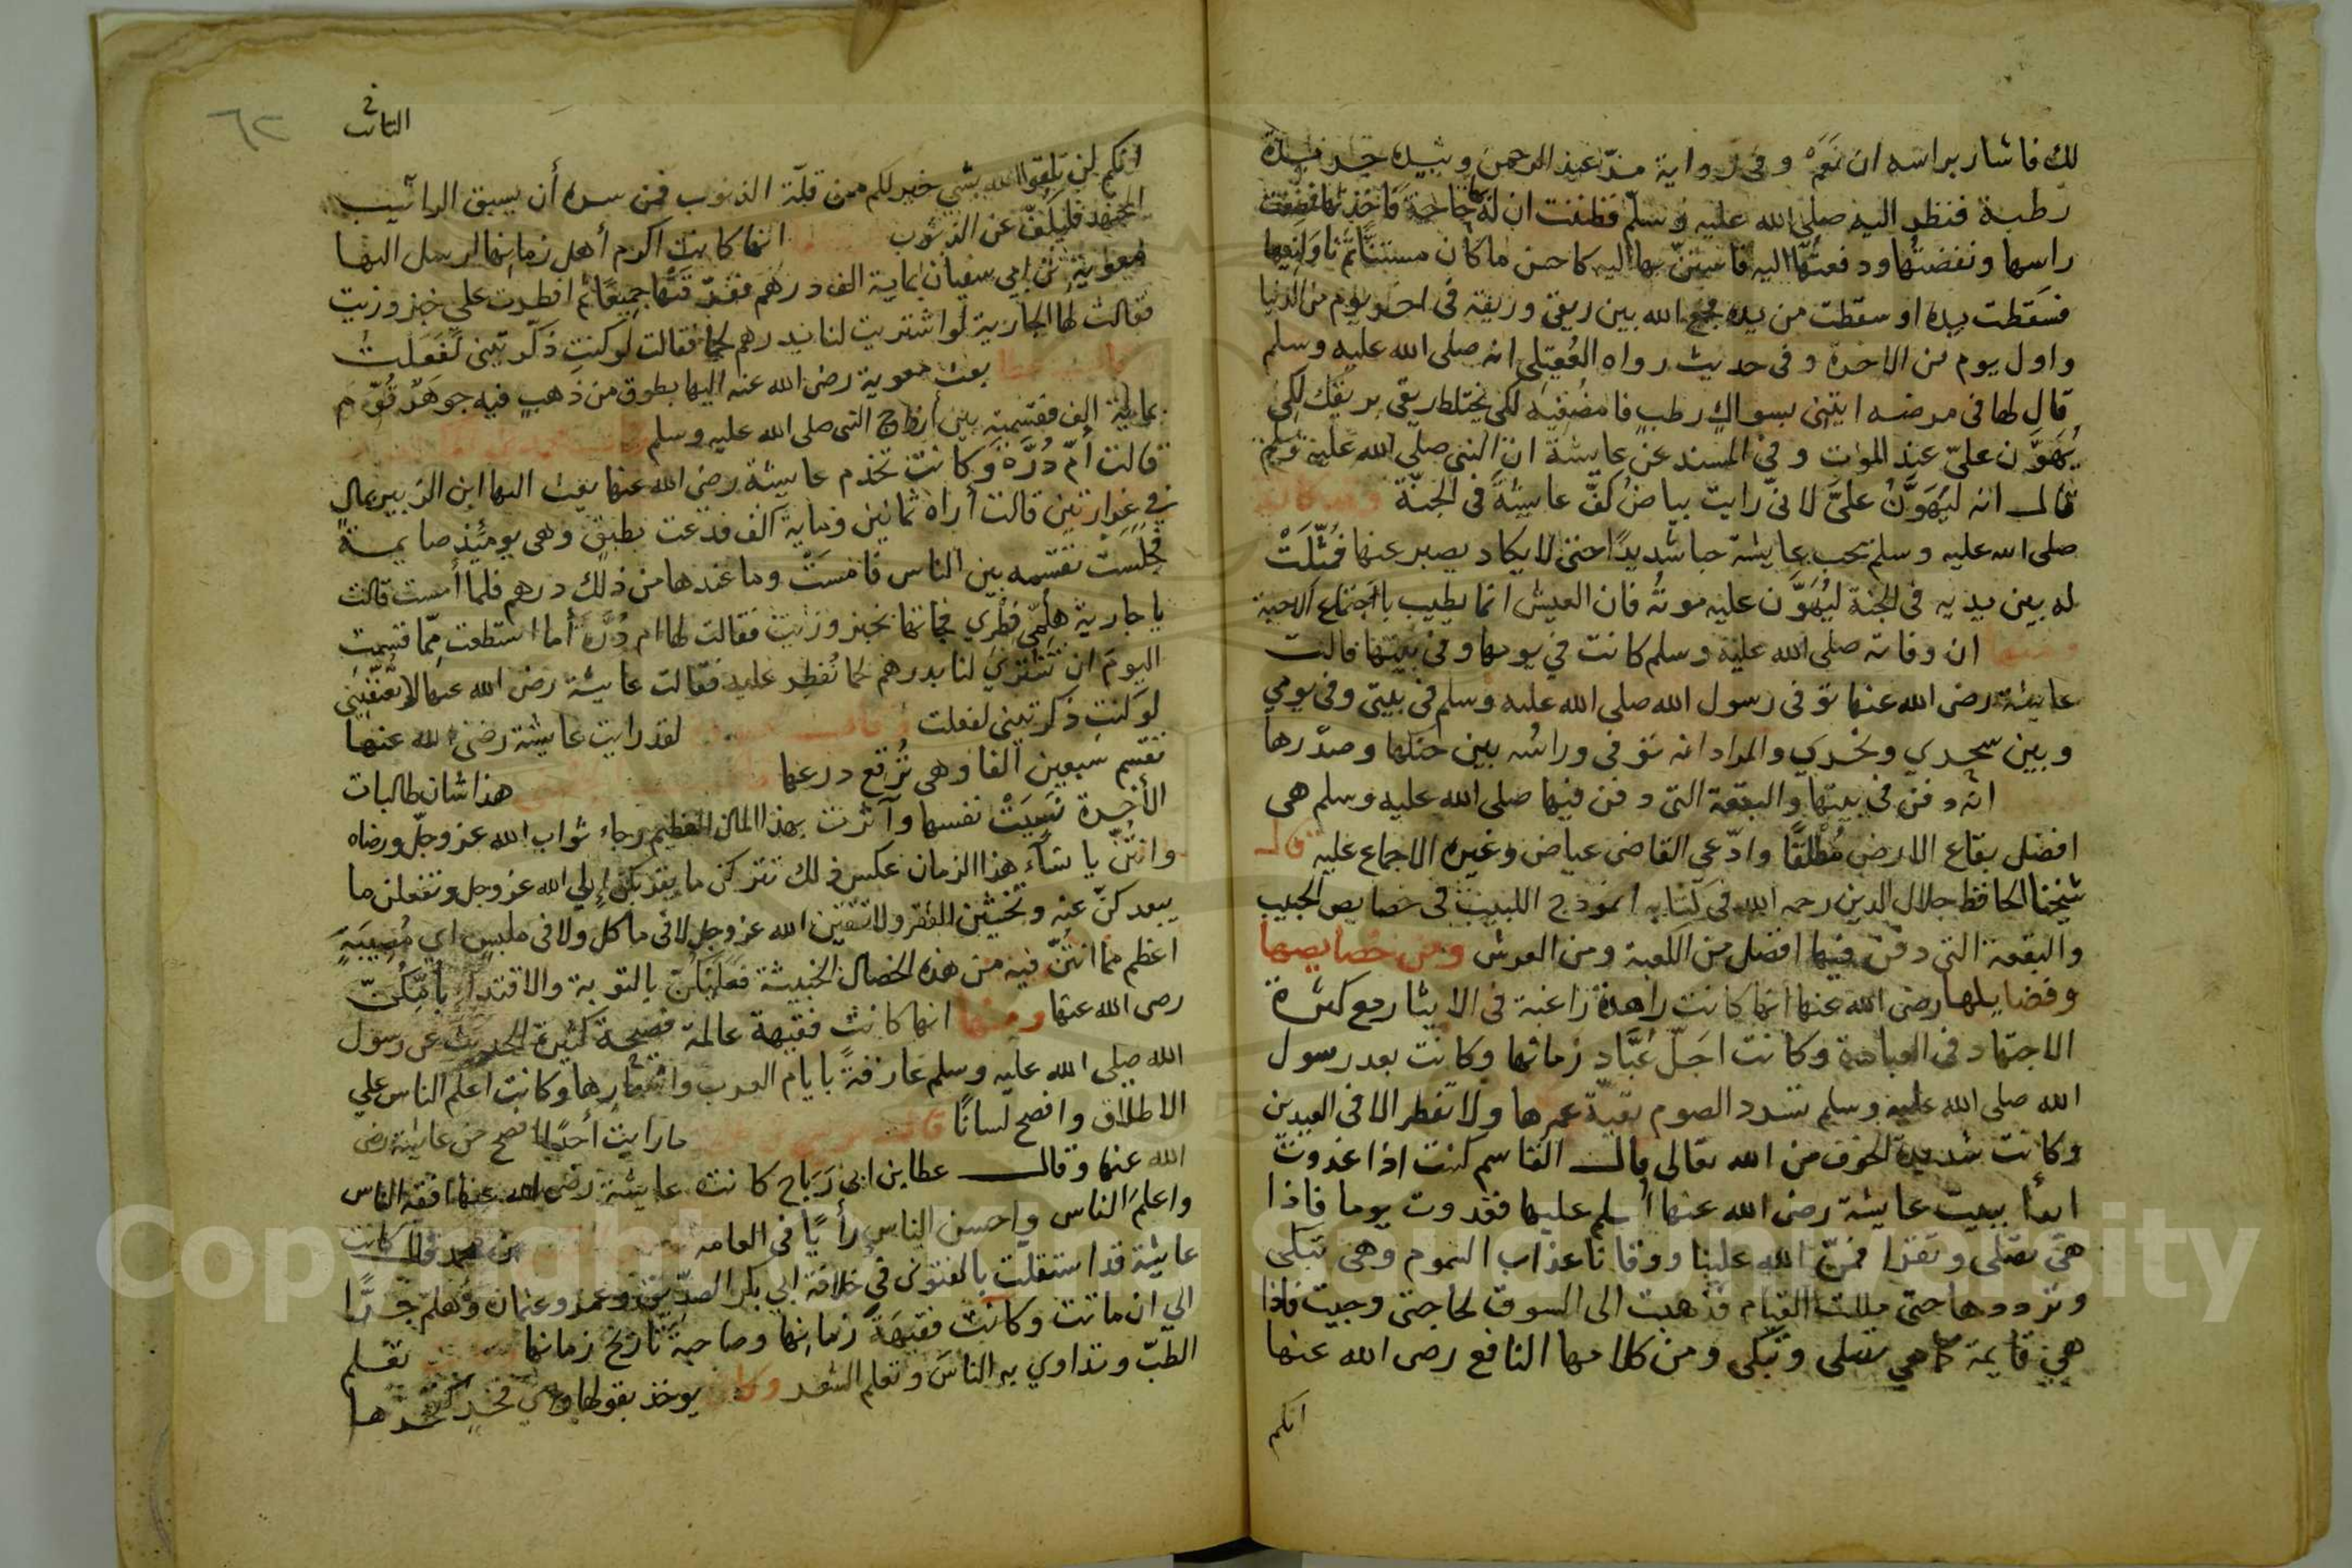 لك فاشار براسه ان نَعَمْ وفى رواية مرّ عبد الرحمن وبيده جريدة
رطبة فنظر اليه صلى الله عليه وسلم فظننت ان له بها حاجة فاخذتها فمضغت
راسها ونفضتُها ودفعتُها اليه فاستنّ بها اليه كاحسن ما كان مستنّا ثم ناولنيها
فسقطت يده او سقطت من يده فجمع الله بين ريقى وريقه فى اخر يوم من الدنيا
واول يوم من الاخرة وفى حديث رواه العُقيلى انه صلى الله عليه وسلم
قال لها فى مرضه ايتينى بسواك رطب فامضغيه لكى يختلط ريقى بريقك لكى
يُهَوَّن علىّ عند الموت وفى المسند عن عايشة ان النبى صلى الله عليه وسلم
قال انه ليُهَوَّنُ علىَّ لانى رايت بياض كفّ عايشة فى الجنّة وقد كان
صلى الله عليه وسلم يحب عايشة حبا شديدًا حتى لا يكاد يصبر عنها فمُثّلَتْ
له بين يديه فى الجنة ليُهَوَّن عليه موتُه فان العيش انما يطيب باجتماع الاحبة
ومنها ان وفاته صلى الله عليه وسلم كانت فى يومها وفى بيتها قالت
عايشة رضى الله عنها توفى رسول الله صلى الله عليه وسلم فى بيتى وفى يومي
وبين سحري ونحري والمراد انه توفى وراسُه بين حنكها وصدرها
انه دفن فى بيتها والبقعة التى دفن فيها صلى الله عليه وسلم هى
افضل بقاع الارض مُطْلَقًا وادّعى القاضى عياض وغيره الاجماع عليه قال
شيخنا الحافظ جلال الدين رحمه الله فى كتابه انموذج اللبيب فى خصايص الحبيب
والبقعة التى دفن فيها افضل من الكعبة ومن العرش ومن خصايصها
وفضايلها رضى الله عنها انها كانت زاهدة راغبة فى الايثار مع كثرة
الاجتهاد فى العبادة وكانت اجلّ عُبَّاد زمانها وكانت بعد رسول
الله صلى الله عليه وسلم تسرد الصوم بقيّة عمرها ولا تفطر الا فى العيدين
وكانت شديدة الخوف من الله تعالى قال القاسم كنت اذا غدوت
ابدأ ببيت عايشة رضى الله عنها اسلم عليها فغدوت يوما فاذا
هى تصلى وتقرا فمنّ الله علينا ووقانا عذاب السموم وهى تبكى
وترددها حتى مللت القيام فذهبت الى السوق لحاجتى وجيت فاذا
هى قايمة كما هي تصلى وتبكى ومن كلامها النافع رضى الله عنها
انكم
انكم لن تلقوا الله بشي خير لكم من قلّة الذنوب فمن سره أن يسبق الدائب
المجتهد فليكفّ عن الذنوب انها كانت اكرم أهل زمانها ارسل اليها
معوية بن ابي سفيان بماية الف درهم ففرّقتها جميعًا ثم افطرت على خبز وزيت
فقالت لها الجارية لو اشتريت لنا بدرهم لحما فقالت لو كنتِ ذكّرتينى لَفَعَلتُ
عطا بعث معوية رضى الله عنه اليها بطوق من ذهب فيه جوهر قُوِّمَ
بماية الف فقسمته بين أزواج النبى صلى الله عليه وسلم
قالت أمّ دُرَّة وكانت تخدم عايشة رضى الله عنها بعث اليها ابن الزبير بمال
فى غرارتين قالت أراه ثمانين وماية الف فدعت بطبق وهى يومئذ صايمة
فجلست تقسمه بين الناس فامست وما عندها من ذلك درهم فلما أمست قالت
يا جارية هلمّى فطري فجاتها بخبز وزيت فقالت لها ام دُرَّة أما استطعت مِمّا قسمت
اليوم ان تشتري لنا بدرهم لحما نُفطِر عليه فقالت عايشة رضى الله عنها لا تُعنّفينى
لو كنتِ ذكرتينى لفعلت لقد رايت عايشة رضى الله عنها
تقسم سبعين الفا وهى تُرقع درعها هذا شان طالبات
الأخرة نَسِيَتْ نفسها وآثرت بهذا المال العظيم رجاء ثواب الله عز وجلّ ورضاه
وانتُنّ يا نساء هذا الزمان عكس ذلك تتركن ما يقربكن إلي الله عز وجل وتفعلن ما
يبعدكنّ عنه وتخشين الفقر ولا تتقين الله عز وجل لا فى ماكل ولا فى ملبس اي مُصِيبَةٍ
اعظم مما انتُنّ فيه من هذه الخصال الخبيثة فعليكنّ بالتوبة والاقتداء بأمّكُنّ
رضى الله عنها ومنها انها كانت فقيهة عالمة فصيحة كثيرة الحديث عن رسول
الله صلى الله عليه وسلم عارفةً بايام العرب واشعارها وكانت اعلم الناس على
الاطلاق وافصح لسانًا ما رايت أحدًا افصح من عايشة رضى
الله عنها وقال عطا بن ابى رَبَاح كانت عايشة رضى الله عنها افقه الناس
واعلمَ الناس واحسن الناس رأيًا فى العامه بن محمد قال كانت
عايشة قد استقلت بالفتوى في خلافة ابي بكر الصدّيق وعمر وعثمان وهلم جرًّا
الي ان ماتت وكانت فقيهَةَ زمانها وصاحبة تاريخ زمانها تعلم
الطبّ وتداوي به الناسَ وتعلم الشعر وكان يوخذ بقولها